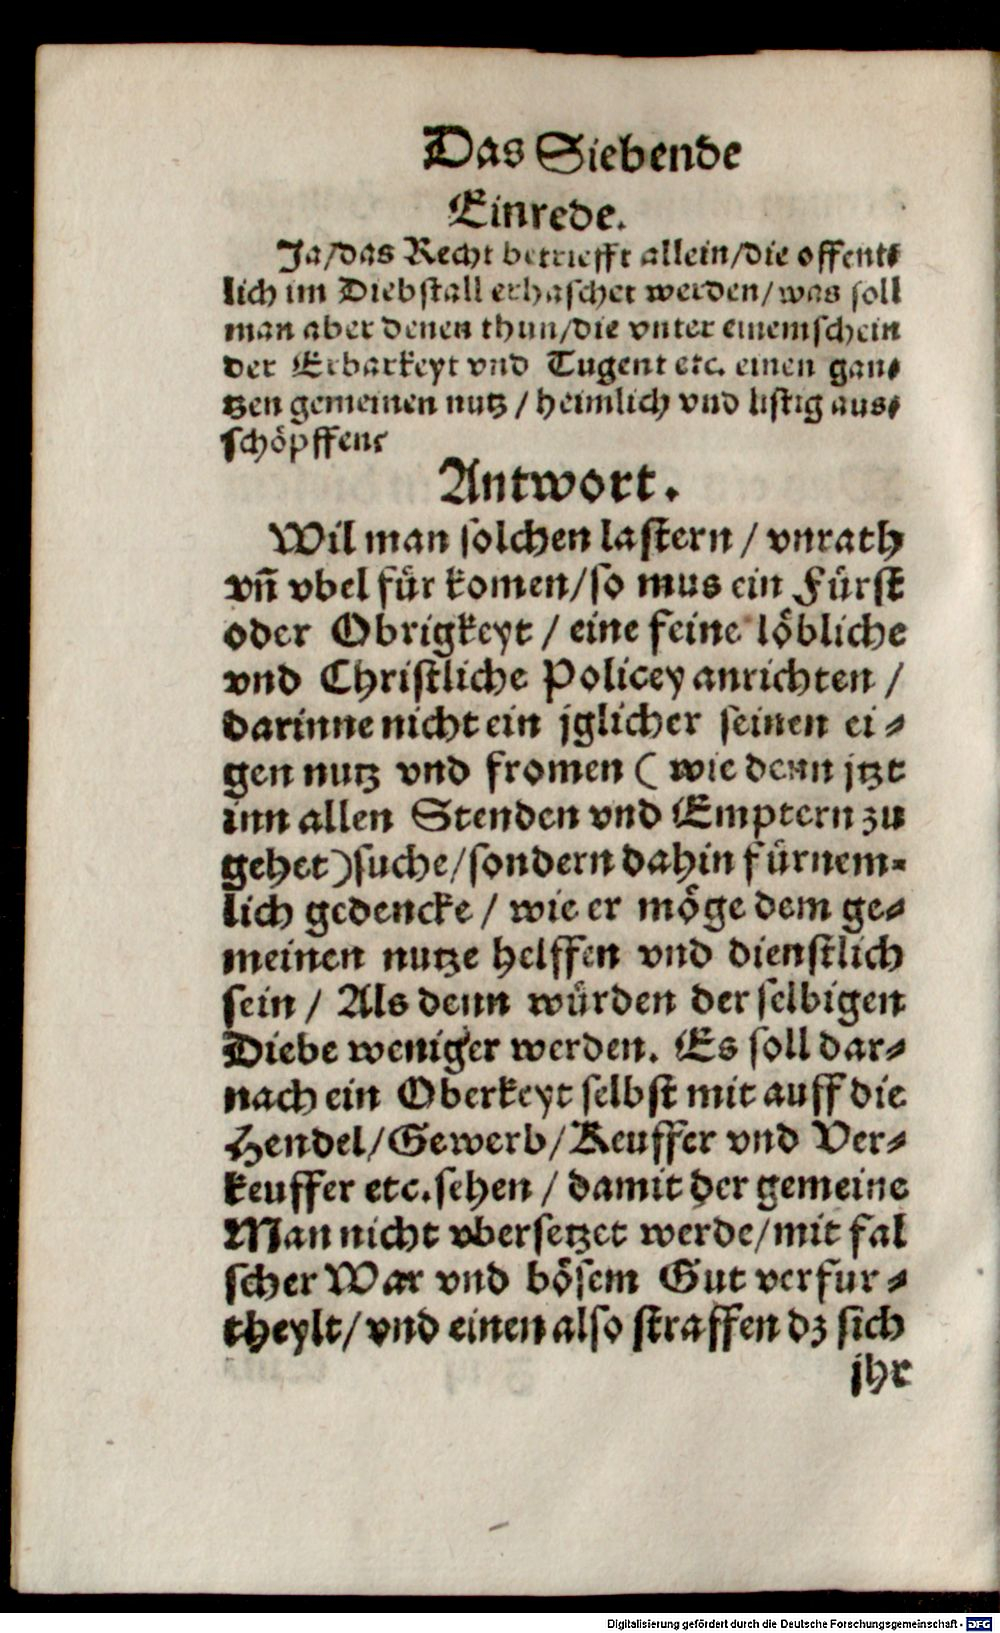 Das Siebende
Einrede.
Ja/das Recht betriefft allein/die offent⸗
lich im Diebstall erhaschet werden/was soll
man aber denen thun/die vnter einem schein
der Erbarkeyt vnd Tugent etc. einen gan⸗
tzen gemeinen nutz / heimlich vnd listig aus⸗
schöpffen?
Antwort.
Wil man solchen lastern / vnrath
vñ vbel für komen/so mus ein Fürst
oder Obrigkeyt / eine feine löbliche
vnd Christliche Policey anrichten /
darinne nicht ein jglicher seinen ei⸗
gen nutz vnd fromen ( wie denn jtzt
inn allen Stenden vnd Emptern zu
gehet)suche/sondern dahin fürnem⸗
lich gedencke / wie er möge dem ge⸗
meinen nutze helffen vnd dienstlich
sein / Als denn würden der selbigen
Diebe weniger werden. Es soll dar⸗
nach ein Oberkeyt selbst mit auff die
Hendel/Gewerb/Keuffer vnd Ver⸗
keuffer etc.sehen / damit der gemeine
Man nicht vbersetzet werde/mit fal
scher War vnd bösem Gut verfur⸗
theylt/vnd einen also straffen dz sich
jhr
Digitalisierung gefördert durch die Deutsche Forschungsgemeinschaft - DFG